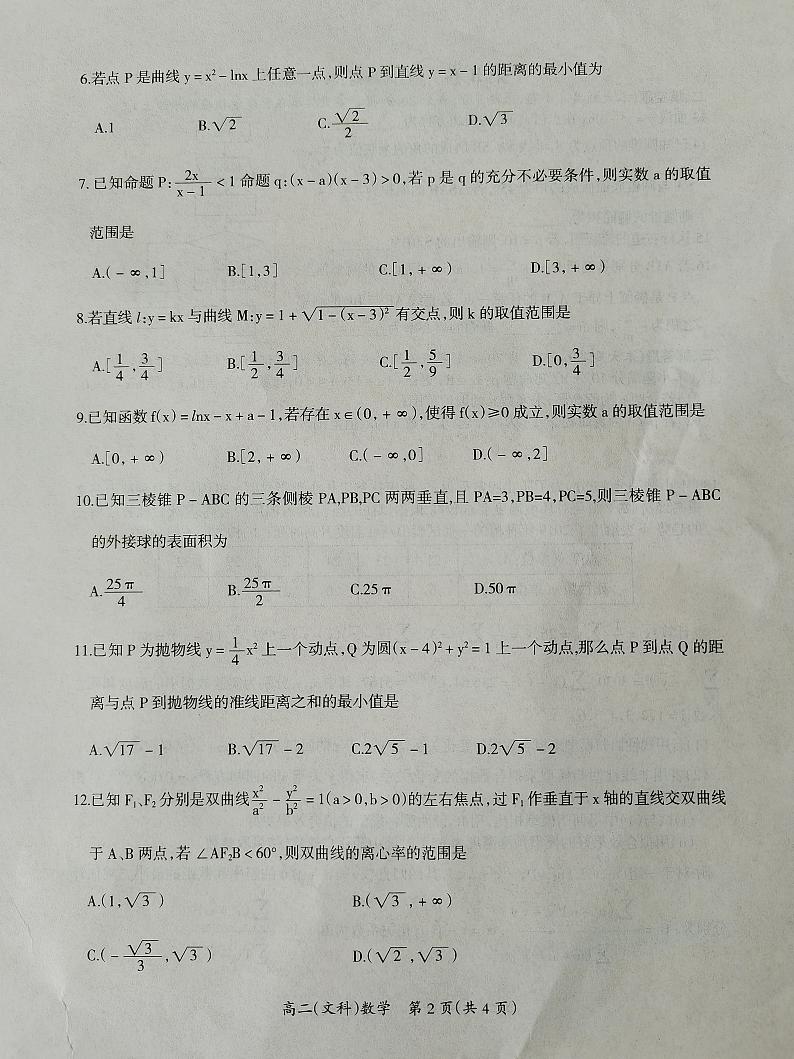 6.若点 P 是曲线 y = x² - lnx 上任意一点,则点 P 到直线 y = x - 1 的距离的最小值为
A.1 B.√2 C.√2/2 D.√3
7. 已知命题 P: 2x/(x - 1) < 1 命题 q:(x - a)(x - 3) > 0,若 p 是 q 的充分不必要条件,则实数 a 的取值
范围是
A.( - ∞ ,1] B.[1,3] C.[1, + ∞ ) D.[3, + ∞ )
8.若直线 l:y = kx 与曲线 M:y = 1 + √(1 - (x - 3)²) 有交点,则 k 的取值范围是
A.[1/4, 3/4] B.[1/2, 3/4] C.[1/2, 5/9] D.[0, 3/4]
9.已知函数 f(x) = lnx - x + a - 1,若存在 x∈(0, + ∞ ),使得 f(x)≥0 成立,则实数 a 的取值范围是
A.[0, + ∞ ) B.[2, + ∞ ) C.( - ∞ ,0] D.( - ∞ ,2]
10.已知三棱锥 P - ABC 的三条侧棱 PA,PB,PC 两两垂直,且 PA=3,PB=4,PC=5,则三棱锥 P - ABC
的外接球的表面积为
A.25π/4 B.25π/2 C.25π D.50π
11.已知 P 为抛物线 y = 1/4 x² 上一个动点,Q 为圆(x - 4)² + y² = 1 上一个动点,那么点 P 到点 Q 的距
离与点 P 到抛物线的准线距离之和的最小值是
A.√17 - 1 B.√17 - 2 C.2√5 - 1 D.2√5 - 2
12.已知 F₁、F₂ 分别是双曲线 x²/a² - y²/b² = 1(a > 0,b > 0)的左右焦点,过 F₁ 作垂直于 x 轴的直线交双曲线
于 A、B 两点,若 ∠AF₂B < 60°,则双曲线的离心率的范围是
A.(1,√3) B.(√3, + ∞ )
C.( - √3/3,√3) D.(√2,√3)
高二(文科)数学 第 2 页(共 4 页)